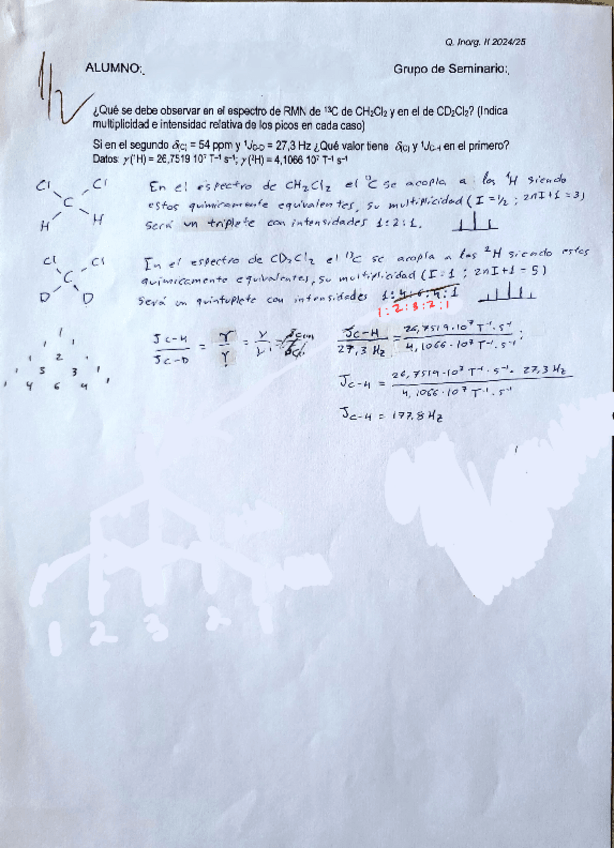 Q. Inorg. II 2024/25
1/2
ALUMNO:
Grupo de Seminario:
¿Qué se debe observar en el espectro de RMN de ¹³C de CH₂Cl₂ y en el de CD₂Cl₂? (Indica
multiplicidad e intensidad relativa de los picos en cada caso)
Si en el segundo δ(C) = 54 ppm y ¹J(C-D) = 27,3 Hz ¿Qué valor tiene δ(C) y ¹J(C-H) en el primero?
Datos: γ(¹H) = 26,7519 10⁷ T⁻¹ s⁻¹; γ(²H) = 4,1066 10⁷ T⁻¹ s⁻¹
Cl Cl
C
H H
En el espectro de CH₂Cl₂ el ¹³C se acopla a los ¹H siendo
estos químicamente equivalentes, su multiplicidad (I = 1/2 ; 2nI+1 = 3)
será un triplete con intensidades 1:2:1.
Cl Cl
C
D D
En el espectro de CD₂Cl₂ el ¹³C se acopla a los ²H siendo estos
químicamente equivalentes, su multiplicidad (I = 1 ; 2nI+1 = 5)
será un quintuplete con intensidades 1:4:6:4:1
1:2:3:2:1
1
1 1
1 2 1
1 3 3 1
1 4 6 4 1
J C-H / J C-D = γ / γ =
J C-H / 27,3 Hz = 26,7519·10⁷ T⁻¹·s⁻¹ / 4,1066·10⁷ T⁻¹·s⁻¹ ;
J C-H = 26,7519·10⁷ T⁻¹·s⁻¹· 27,3 Hz / 4,1066·10⁷ T⁻¹·s⁻¹
J C-H = 177,8 Hz
1 2 3 2 1